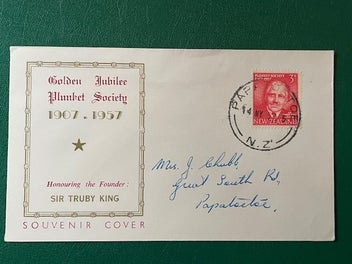 Golden Jubilee
Plunket Society
1907 . 1957
Honouring the Founder:
SIR TRUBY KING
SOUVENIR COVER
PLUNKET SOCIETY
3D
NEW ZEALAND
N.Z.
Mrs. J. Chubb,
Great South Rd,
Papatoetoe.